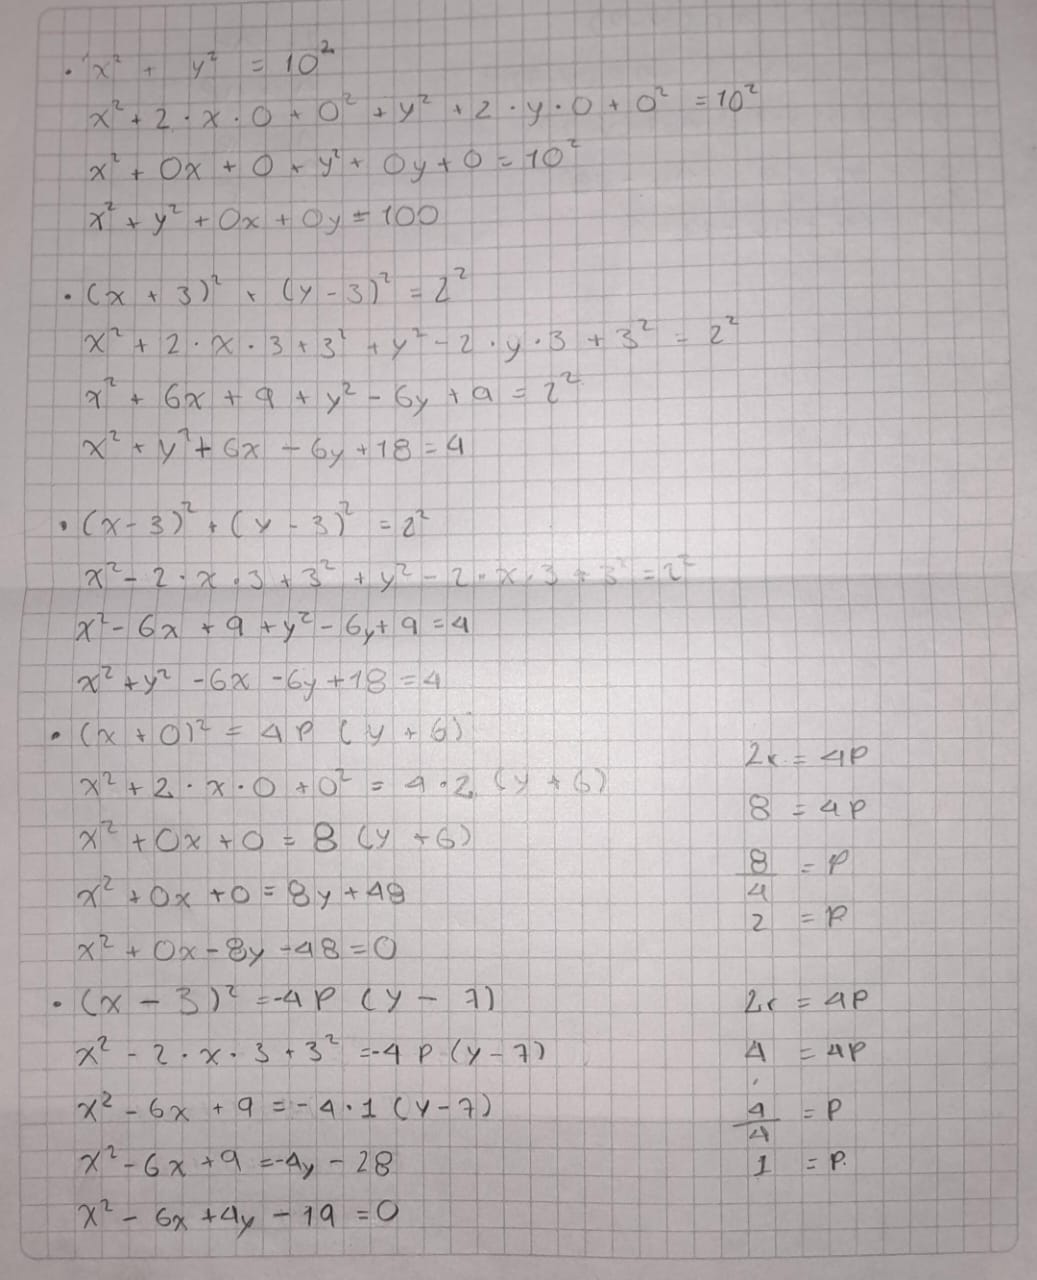 • x² + y² = 10²
x² + 2 · x · 0 + 0² + y² + 2 · y · 0 + 0² = 10²
x² + 0x + 0 + y² + 0y + 0 = 10²
x² + y² + 0x + 0y = 100
• (x + 3)² + (y - 3)² = 2²
x² + 2 · x · 3 + 3² + y² - 2 · y · 3 + 3² = 2²
x² + 6x + 9 + y² - 6y + 9 = 2²
x² + y² + 6x - 6y + 18 = 4
• (x - 3)² + (y - 3)² = 2²
x² - 2 · x · 3 + 3² + y² - 2 · x · 3 + 3² = 2²
x² - 6x + 9 + y² - 6y + 9 = 4
x² + y² - 6x - 6y + 18 = 4
• (x + 0)² = 4P (y + 6)
x² + 2 · x · 0 + 0² = 4 · 2 (y + 6)
x² + 0x + 0 = 8 (y + 6)
x² + 0x + 0 = 8y + 48
x² + 0x - 8y - 48 = 0
2r = 4P
8 = 4P
8/4 = P
2 = P
• (x - 3)² = -4P (y - 7)
x² - 2 · x · 3 + 3² = -4P (y - 7)
x² - 6x + 9 = -4 · 1 (y - 7)
x² - 6x + 9 = -4y - 28
x² - 6x + 4y - 19 = 0
2r = 4P
4 = 4P
4/4 = P
1 = P.